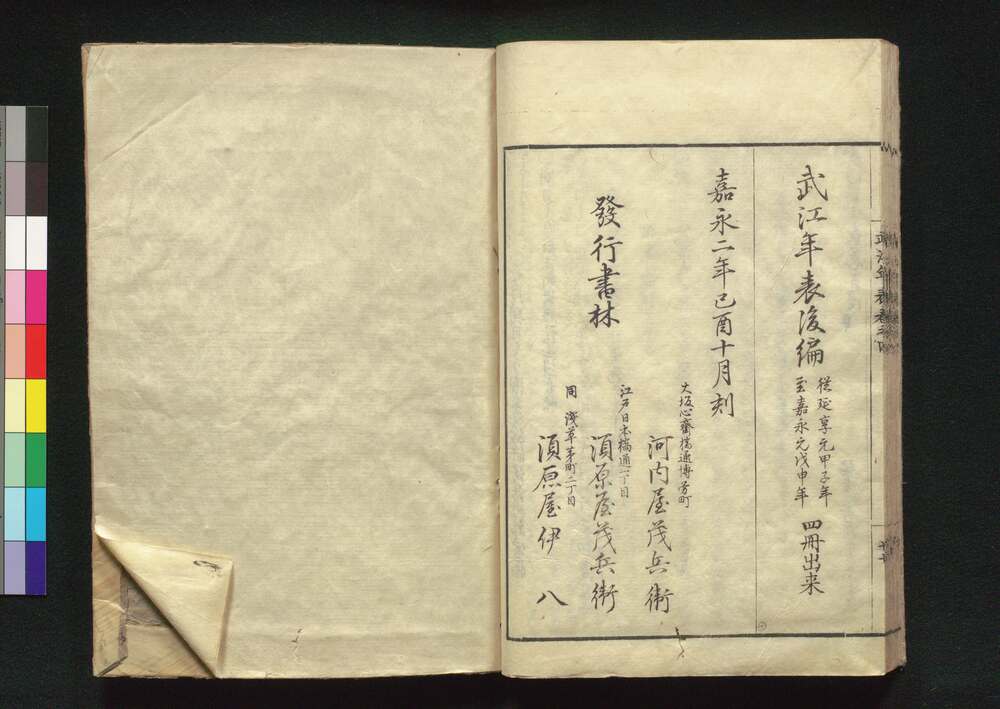 武江年表後編
従延享元甲子年
至嘉永元戊申年
四冊出来
嘉永二年己酉十月刻
發行書林
大坂心齋橋通博労町
河内屋茂兵衛
江戸日本橋通一丁目
須原屋茂兵衛
同 浅草茅町二丁目
須原屋伊八